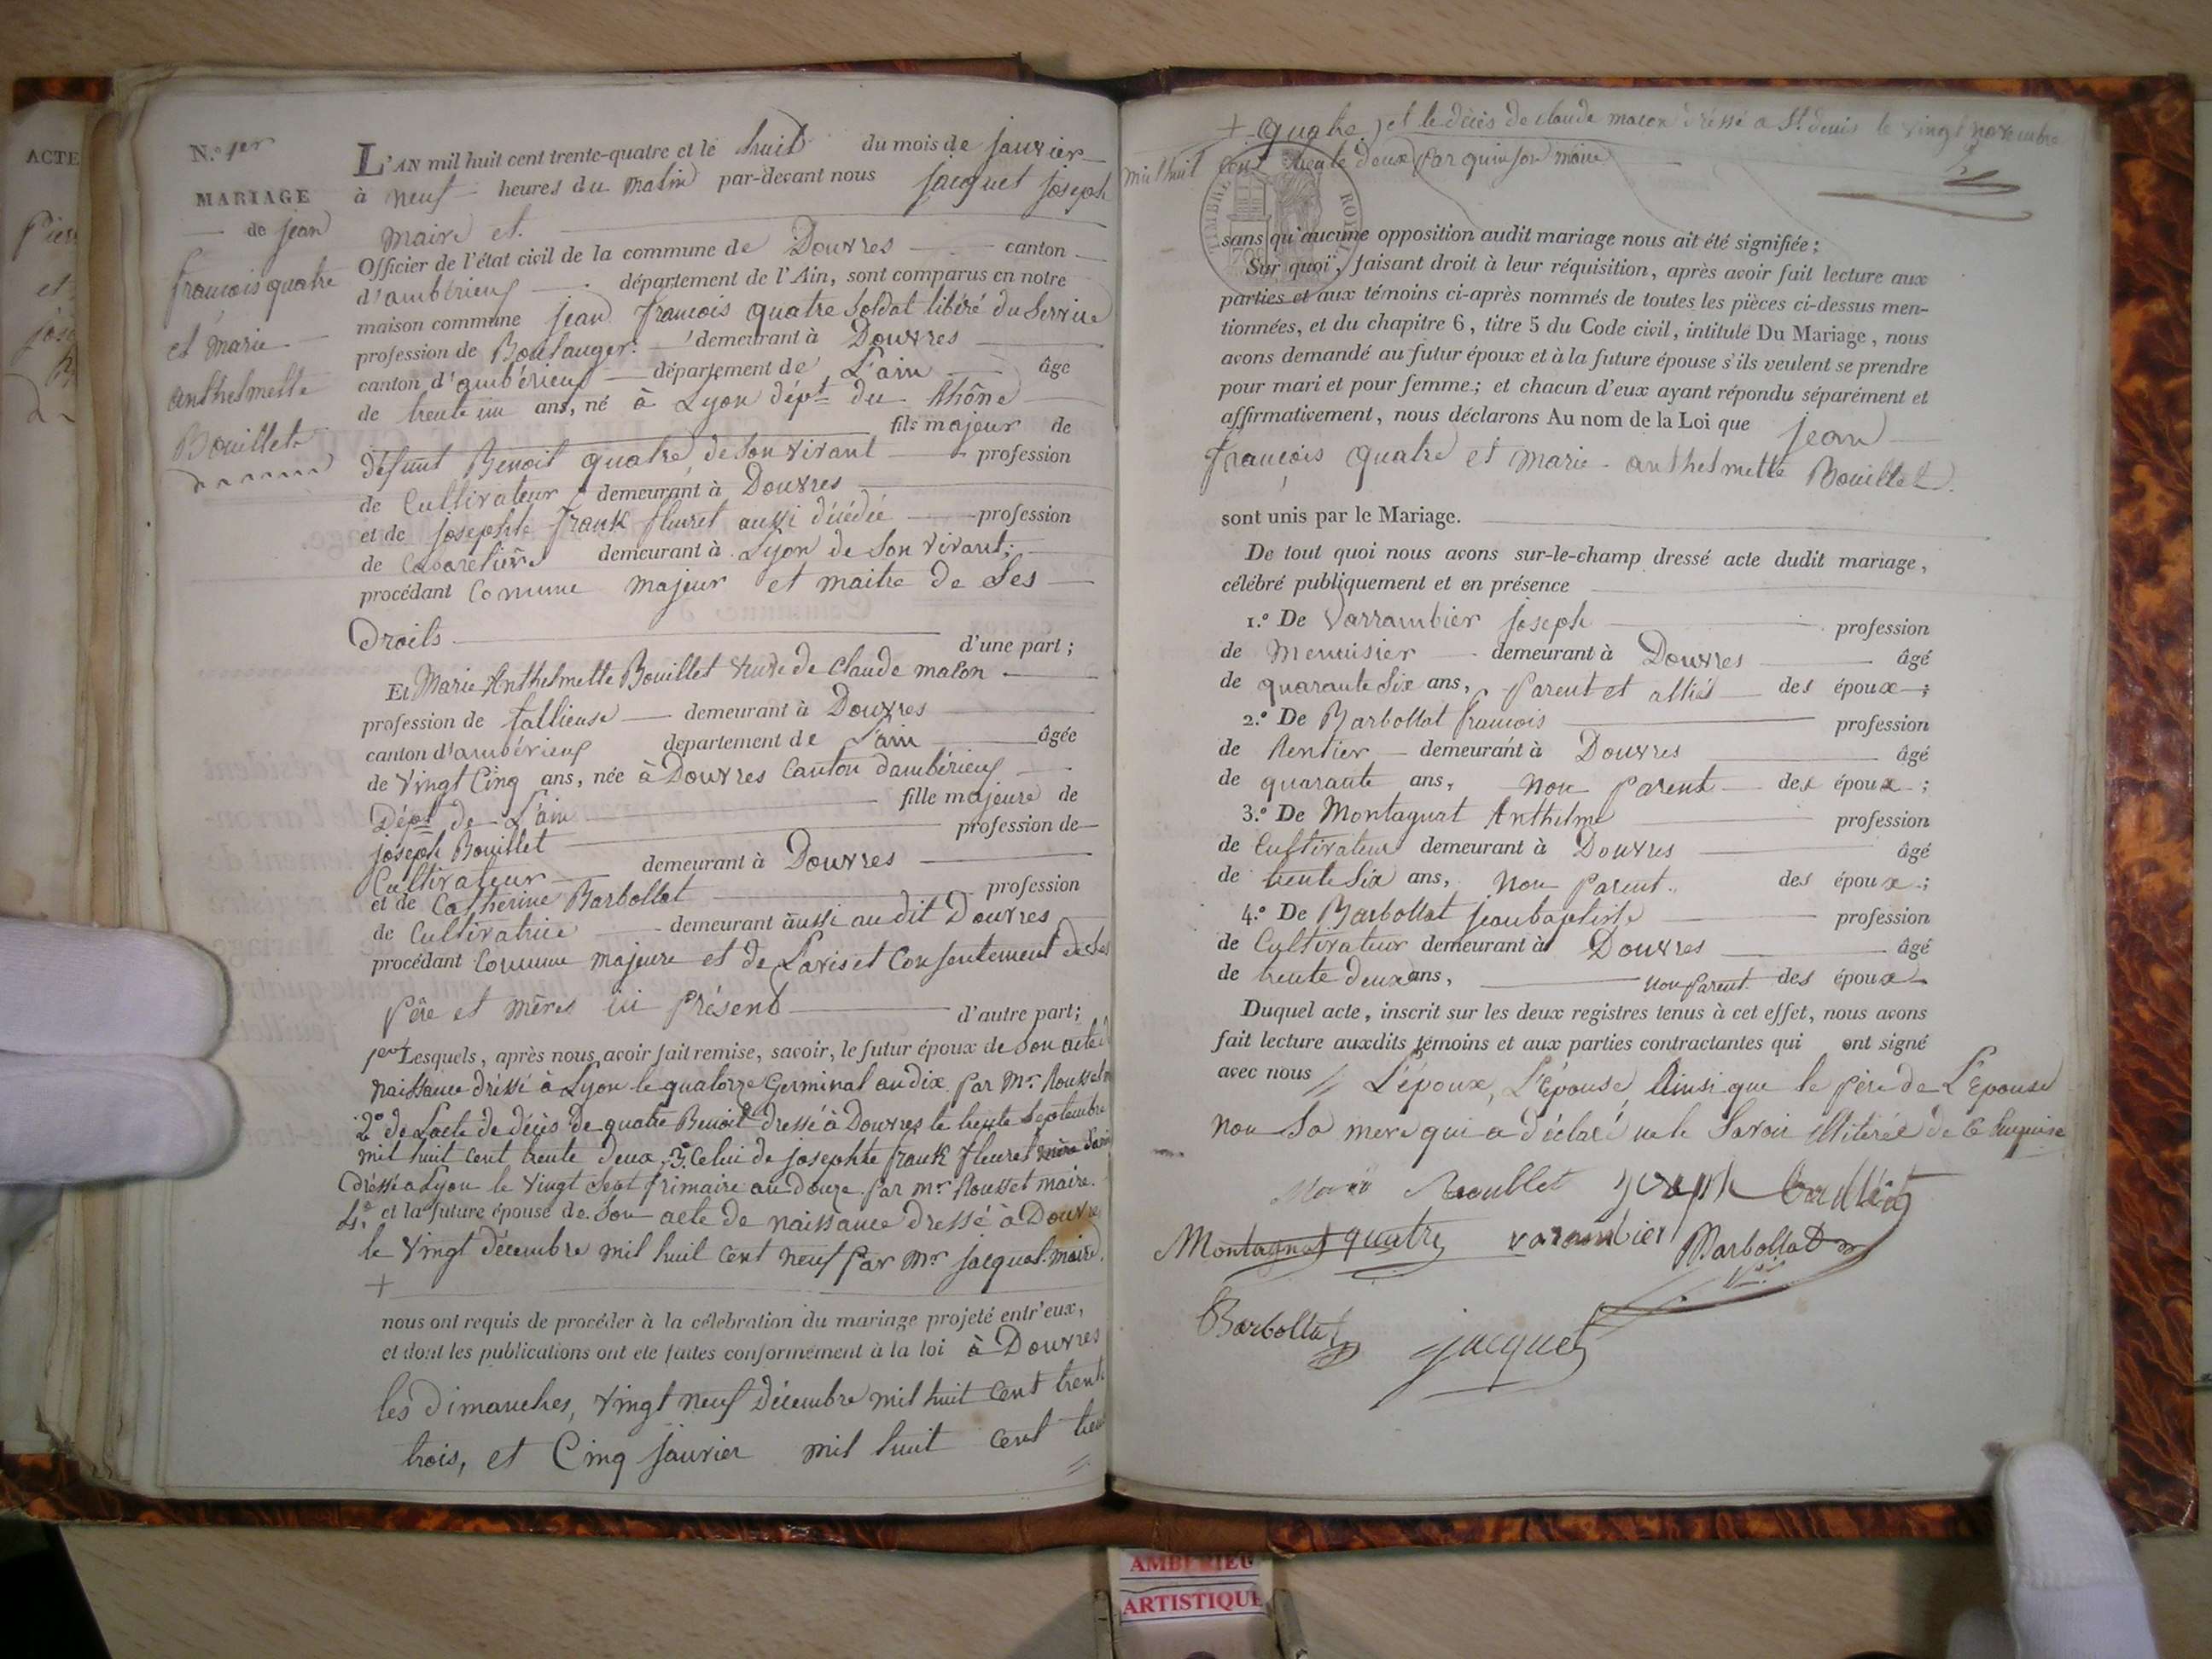 ACTE
Pier
et
jose
N.º 1er
MARIAGE
de jean
francois quatre
et marie
anthelmette
Bouillet
L'AN mil huit cent trente-quatre et le huit du mois de janvier
à neuf heures du matin par-devant nous jacquet joseph
maire et
Officier de l'état civil de la commune de Douvres canton
d'ambérieux département de l'Ain, sont comparus en notre
maison commune jean francois quatre soldat libéré du service
profession de Boulanger demeurant à Douvres
canton d'ambérieux département de L'ain âge
de trente un ans, né à Lyon dépt du Rhône
fils majeur de
défunt Benoit quatre de son vivant profession
de Cultivateur demeurant à Douvres
et de josephte frank fleuret aussi décédée profession
de Cabaretière demeurant à Lyon de son vivant;
procédant Comme majeur et maitre de Ses
Droits d'une part;
Et Marie Anthelmette Bouillet veuve de Claude macon
profession de tallieuse demeurant à Douvres
canton d'ambérieux département de L'ain âgée
de vingt Cinq ans, née à Douvres Canton d'ambérieux
Dépt de L'ain fille majeure de
joseph Bouillet profession de
Cultivateur demeurant à Douvres
et de Catherine Barbollat profession
de Cultivatrice demeurant aussi au dit Douvres
procédant Comme majeure et de L'avis et Consentement de Ses
Père et mères ici présent d'autre part;
1er Lesquels, après nous avoir fait remise, savoir, le futur époux de Son acte d
naissance dréssé à Lyon le quatorze Germinal an dix par Mr Rousset
2º de L'acte de décès de quatre Benoit dressé à Douvres le trente Septembre
mil huit cent trente deux, 3º Celui de josephte frank fleuret
dréssé a Lyon le vingt Sept frimaire an douze par mr Rousset maire.
4º et la future épouse de Son acte de naissance dressé à Douvres
le vingt décembre mil huit cent neuf par Mr jacquet maire
+
nous ont requis de procéder à la célébration du mariage projeté entr'eux,
et dont les publications ont été faites conformément à la loi à Douvres
les Dimanches, vingt neuf Décembre mil huit cent trente
trois, et Cinq janvier mil huit cent trente
+ quatre, et le décès de claude macon dréssé a St denis le vingt novembre
mil huit cent trente deux par quinson maire
TIMBRE ROYAL
sans qu'aucune opposition audit mariage nous ait été signifiée;
Sur quoi, faisant droit à leur réquisition, après avoir fait lecture aux
parties et aux témoins ci-après nommés de toutes les pièces ci-dessus men-
tionnées, et du chapitre 6, titre 5 du Code civil, intitulé Du Mariage, nous
avons demandé au futur époux et à la future épouse s'ils veulent se prendre
pour mari et pour femme; et chacun d'eux ayant répondu séparément et
affirmativement, nous déclarons Au nom de la Loi que jean
françois quatre et marie anthelmette Bouillet
sont unis par le Mariage.
De tout quoi nous avons sur-le-champ dressé acte dudit mariage,
célébré publiquement et en présence
1.º De Varrambier joseph profession
de Menuisier demeurant à Douvres âgé
de quarante Six ans, parent et alliés des époux;
2.º De Barbollat francois profession
de Rentier demeurant à Douvres âgé
de quarante ans, non parent des époux;
3.º De Montagnat Anthelme profession
de Cultivateur demeurant à Douvres âgé
de trente Six ans, non parent des époux;
4.º De Barbollat jeanbaptiste profession
de Cultivateur demeurant à Douvres âgé
de trente deux ans, non parent des époux
Duquel acte, inscrit sur les deux registres tenus à cet effet, nous avons
fait lecture auxdits témoins et aux parties contractantes qui ont signé
avec nous L'époux, L'épouse, Ainsi que le père de L'Epouse
non Sa mere qui a déclaré ne le Savoir illiterée de ce Enquise
Bouillet joseph bouillet
Montagnat quatre varambier Barbollat
Barbollat jacquet
AMBERIEU
ARTISTIQUE